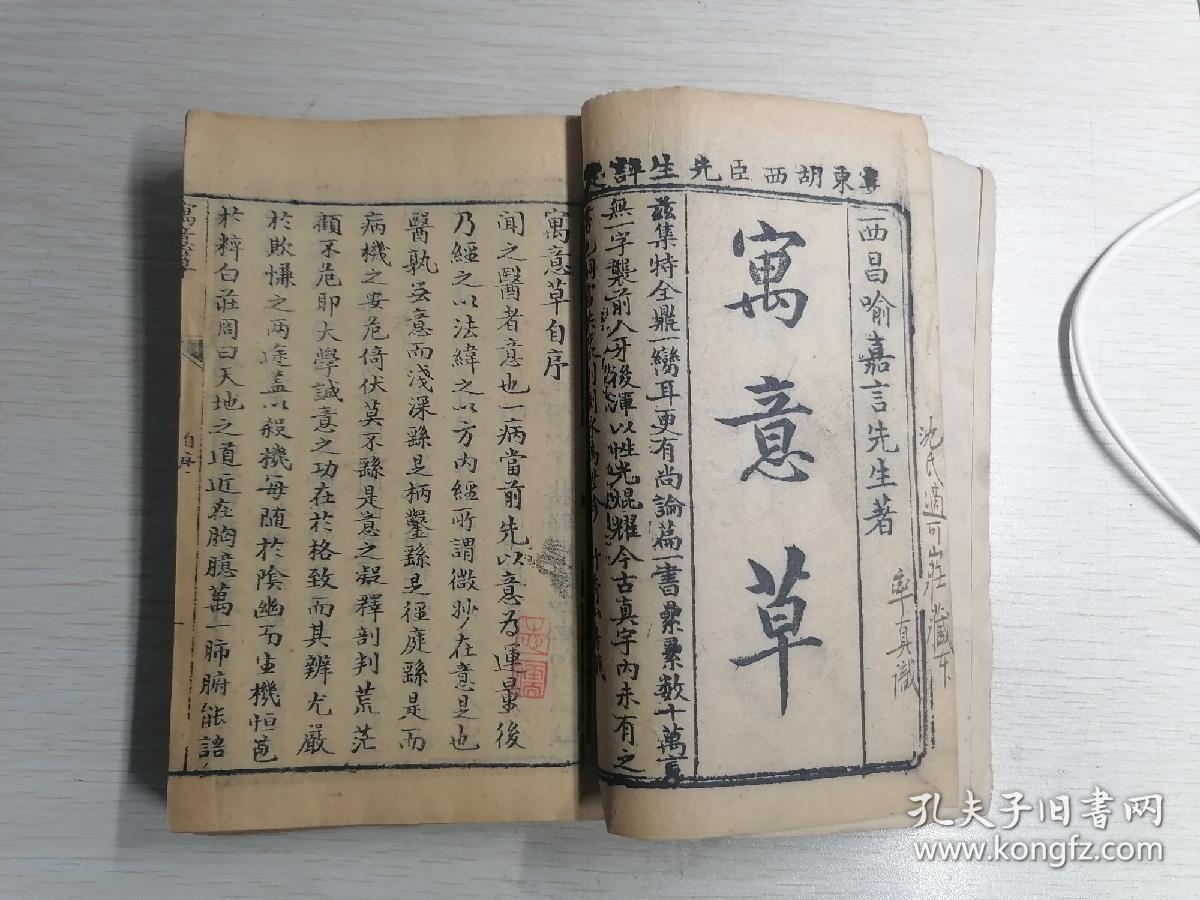 東胡西臣先生評
西昌喻嘉言先生著
寓意草
茲集特全鼎一臠耳更有尚論篇一書纍纍數十萬言
無一字襲前人牙後渾以性光焜耀今古真宇內未有之
沈氏適可山莊藏下
率真識
寓意草自序
聞之醫者意也一病當前先以意為運量後
乃經之以法緯之以方內經所謂微妙在意是也
醫孰無意而淺深繇是柄鑿繇是徑庭繇是而
病機之安危倚伏莫不繇是意之凝釋剖判荒茫
顧不危耶大學誠意之功在於格致而其辨尤嚴
於欺慊之兩途蓋以殺機每隨於陰幽而生機恒苞
於粹白莊周曰天地之道近在胸臆萬一肺腑能語
寓意草
自序
孔夫子旧书网
www.kongfz.com